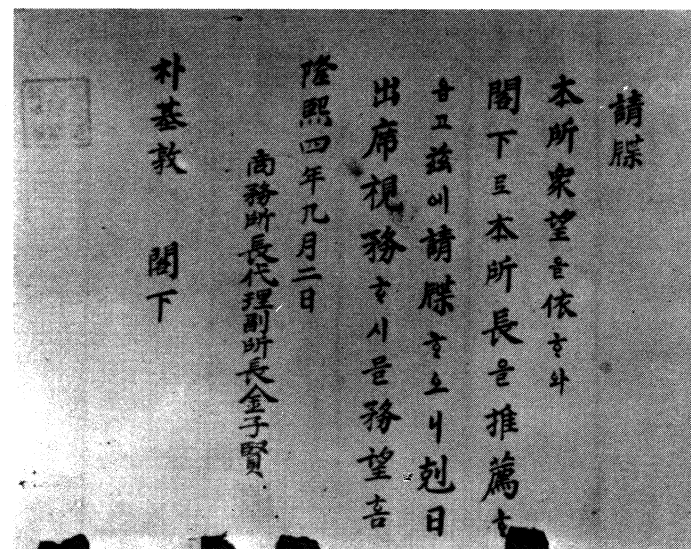 請牒
本所衆望을依ᄒᆞ와
閣下로本所長을推薦ᄒᆞ
옵고玆에請牒ᄒᆞ오니剋日
出席視務ᄒᆞ시믈務望홈
隆熙四年九月二日
商務所長代理副所長金子賢
朴基敦 閣下